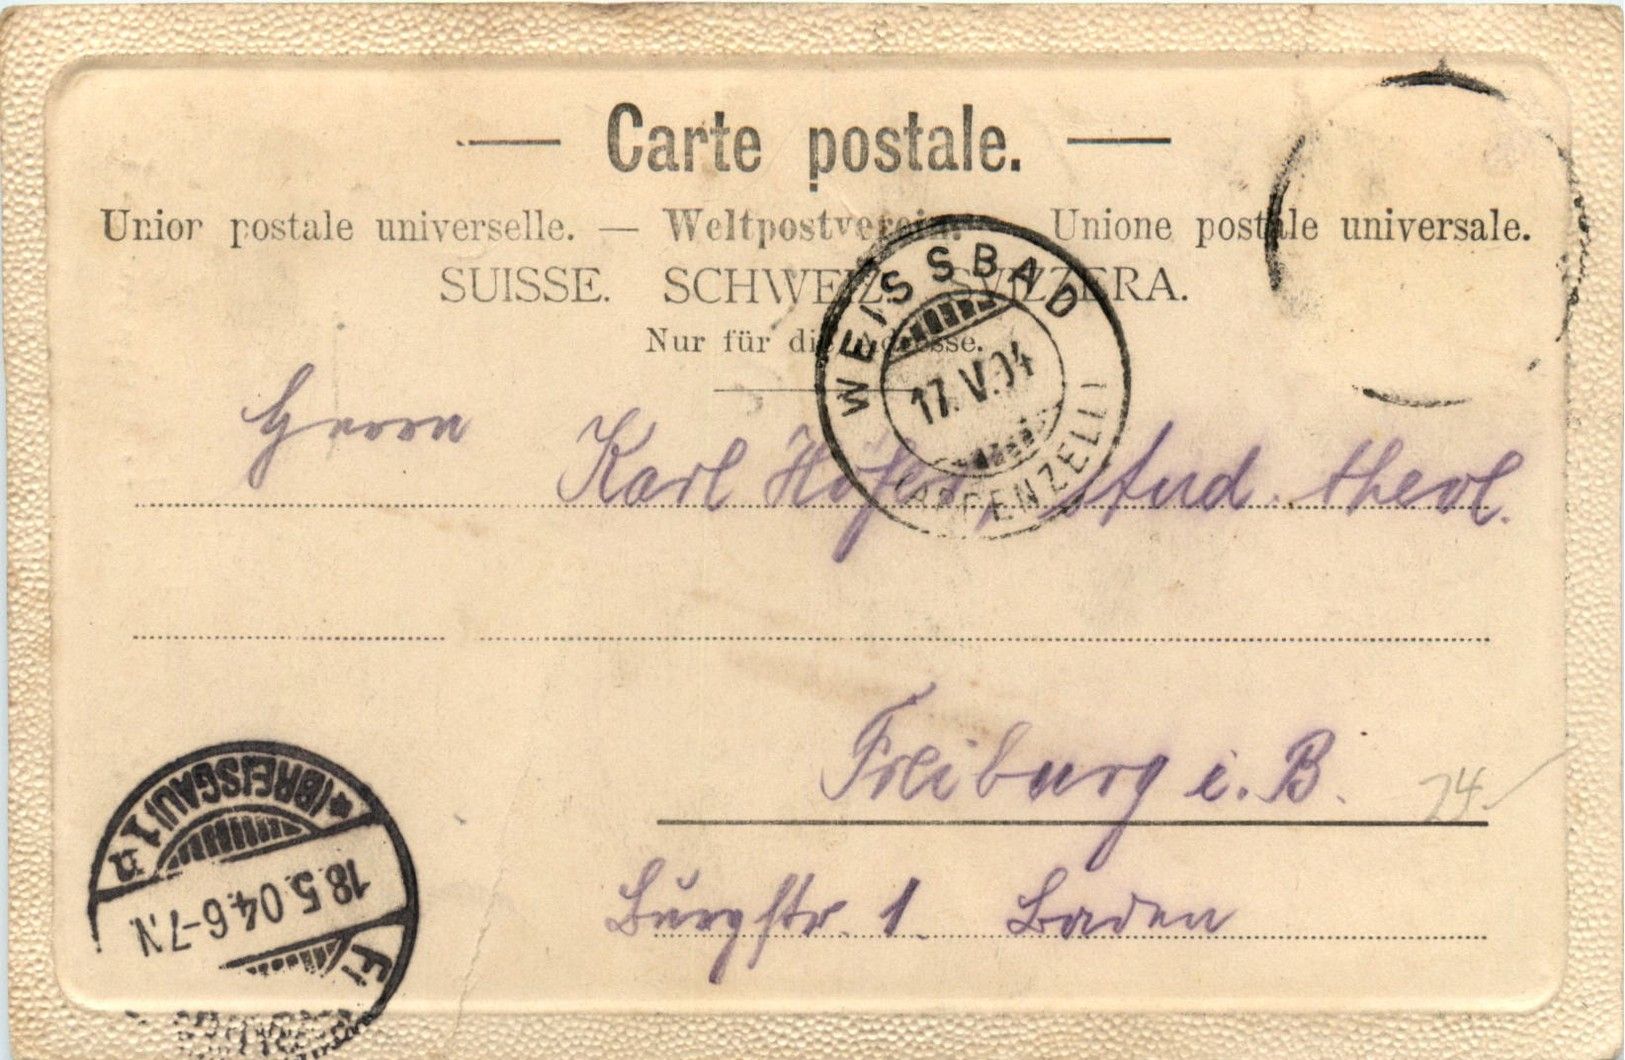 — Carte postale. —
Union postale universelle. — Weltpostverein. Unione postale universale.
SUISSE. SCHWEIZ. SVIZZERA.
Nur für die Adresse.
WEISSBAD
17.V.04
(APPENZELL)
Herrn Karl Höfer, stud. theol.
Freiburg i. B.
24.
Burgstr. 1. Baden
(BREISGAU) 1 a
18.5.04.6-7.N.